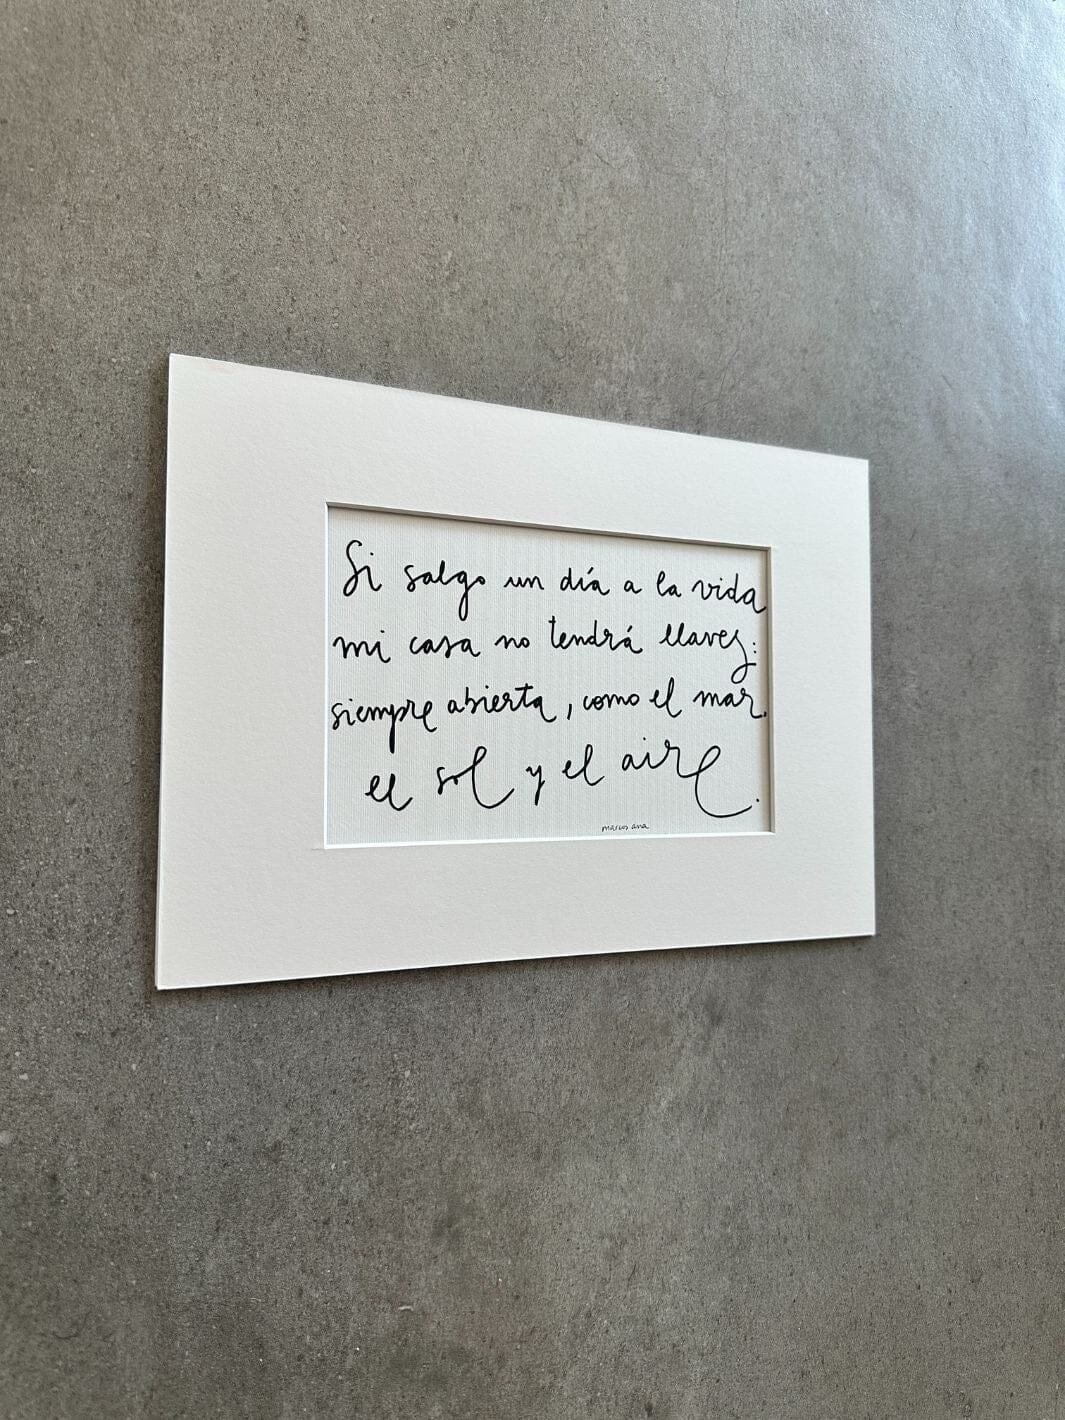 Si salgo un día a la vida
mi casa no tendrá llaves:
siempre abierta, como el mar.
el sol y el aire.
marcos ana